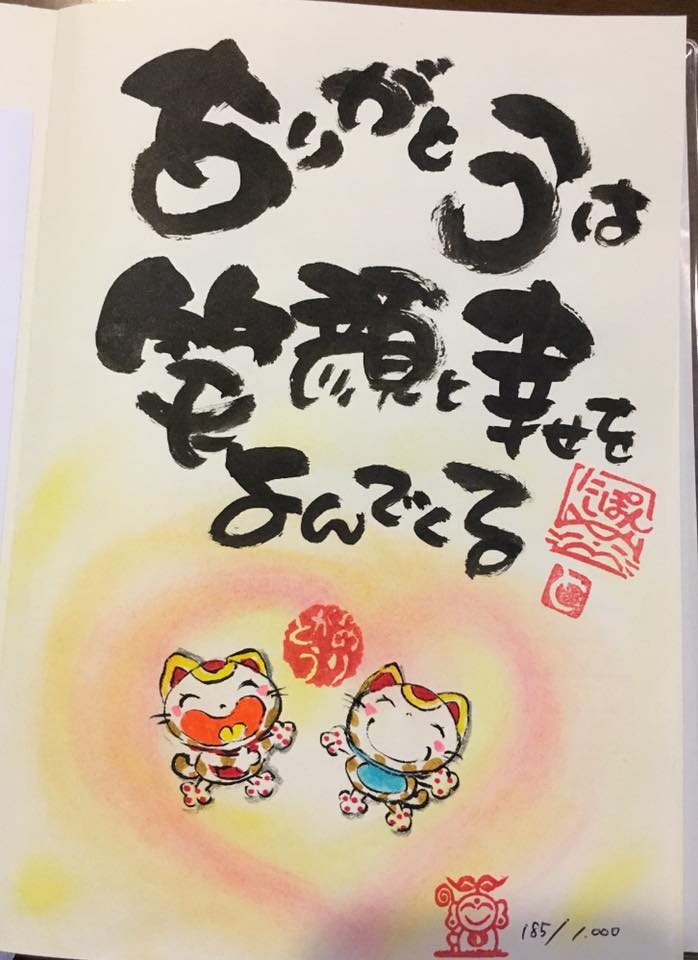 ありがとうは
笑顔と幸せを
よんでくる
にっぽん
と
ありがとう
185/1.000